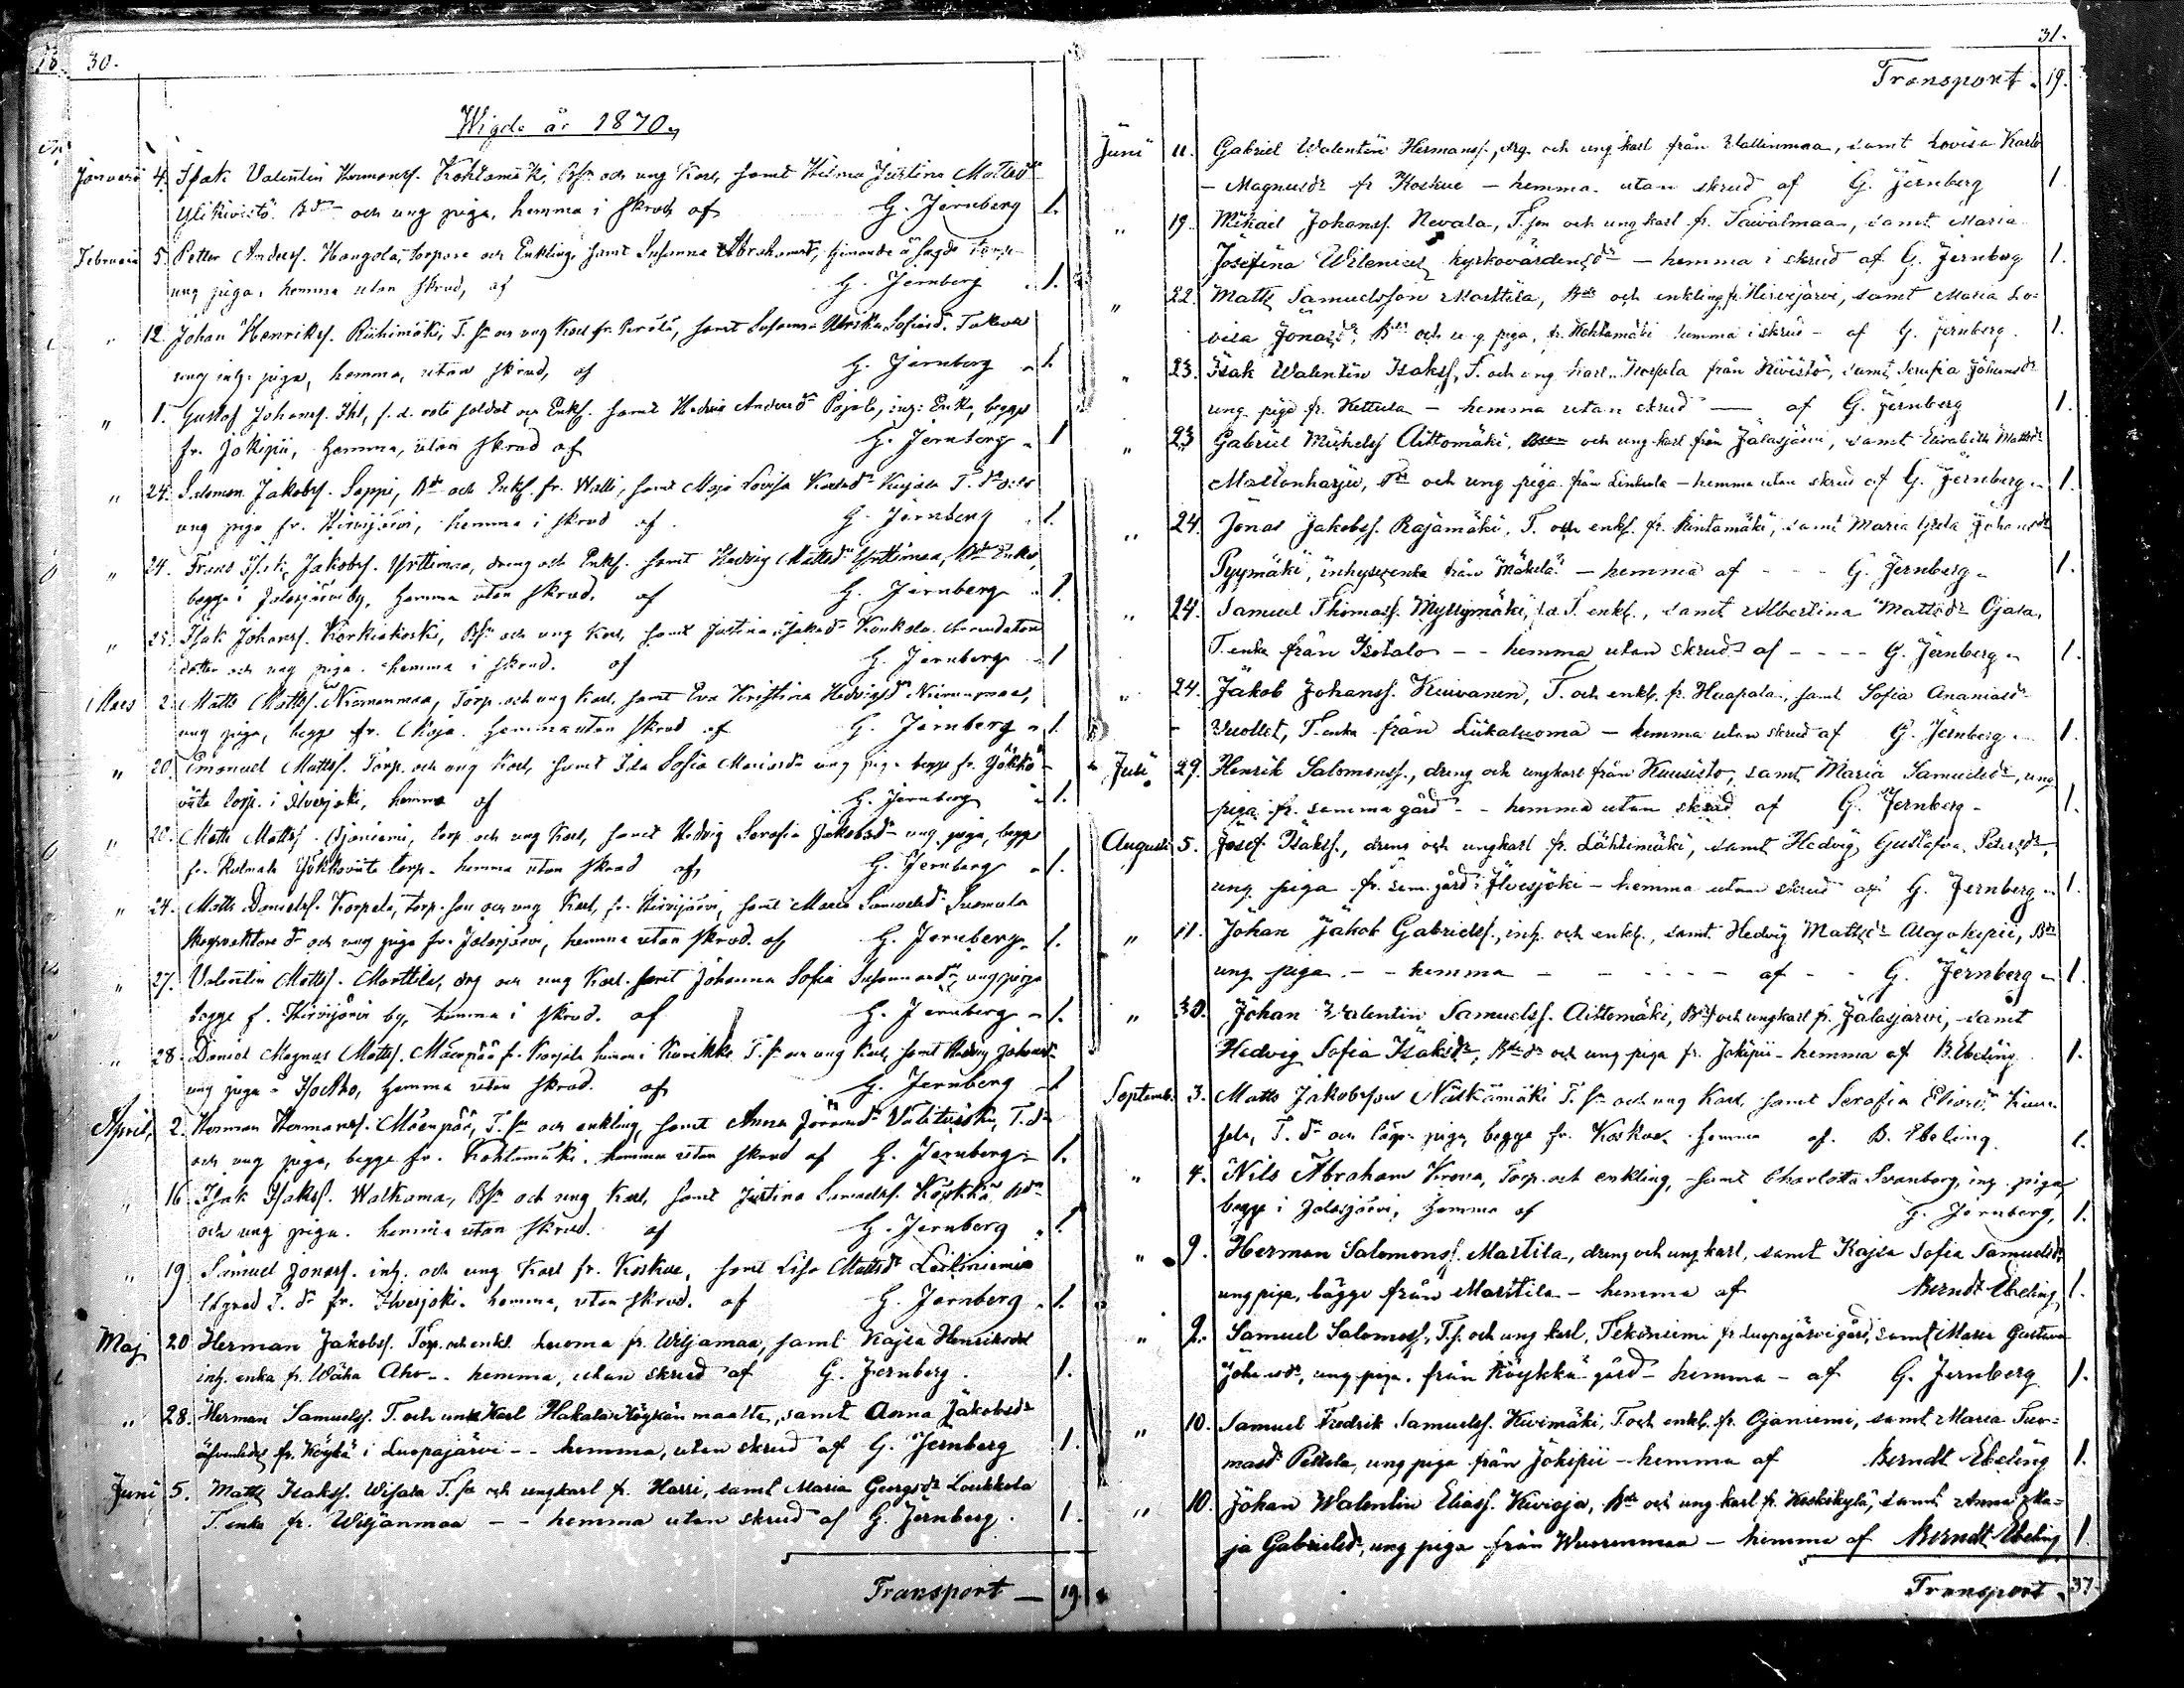 30.
Wigde år 1870.
Januari 4. Isak Valentin Hermanss. Kohtamäki, Bsn och ung Karl, samt Hilma Justina Mattsdr
Ylikivistö. Bdr och ung piga, hemma i skrud af G. Jernberg 1.
Februari 5. Petter Anderss. Hangola, torpare och Enkling, samt Susanna Abrahamsdr,
ung piga, hemma utan skrud, af G. Jernberg 1.
" 12. Johan Henrikss. Riihimäki, T. sn och ung Karl fr. Perälä, samt Susanna Ulrika Sofiasd.
ung inh. piga, hemma, utan skrud, af G. Jernberg 1
" 1. Gustaf Johanss. Ihl, f. d. rote soldat och Enkl. samt Hedvig Andersdr Pajala, inh. Enka, begge
fr. Jokipii, hemma, utan skrud af G. Jernberg 1
" 24. Salomon Jakobss. Seppi, Bde och Enkl. fr. Walli, samt Maja Lovisa Karlsdr T. dotter
ung piga fr. Hirvijärvi, hemma i skrud af G. Jernberg 1.
" 24. Frans Isak Jakobss. Yrttimaa, dreng och Enkl. samt Hedvig Mattsdr Yrttimaa, Bde Enka,
begge i Jalasjärvi by, hemma utan skrud. af G. Jernberg 1.
" 25. Isak Johanss. Korkiakoski, Bsn och ung Karl, samt Justina Isaksdr Koukola
dotter och ung piga. hemma i skrud. af G. Jernberg 1
Mars 2. Matts Mattss. Niemenmaa, Torp. och ung Karl, samt Eva Kristina Hedvigsdr Niemenmaa,
ung piga, begge fr. Koja. hemma utan skrud af G. Jernberg 1.
" 20. Emanuel Mattss. Torp. och ung Karl, samt Ida Sofia Mariasdr ung piga begge fr. Jökkö-
viita torp. i Ilvesjoki, hemma af G. Jernberg 1.
" 20. Matts Mattss. Ojaniemi, torp och ung Karl, samt Hedvig Serafia Jakobsdr ung piga, begge
fr. Jökköviita torp. hemma utan skrud af G. Jernberg 1.
" 24. Matts Danielss. Korpela, torp. son och ung Karl, fr. Hirvijärvi, samt Maria Samuelsdr Luomala
dr och ung piga fr. Jalasjärvi, hemma utan skrud. af G. Jernberg 1.
" 27. Valentin Mattss. Marttila, drg och ung Karl. samt Johanna Sofia Susannasdr, ung piga
begge f. Hirvijärvi by, hemma i skrud. af G. Jernberg 1.
" 28. Daniel Magnus Mattss. Mäenpää fr. Karjala hemma i Kurikka T. sn och ung Karl, samt Hedvig Johansdr
ung piga hemma utan skrud. af G. Jernberg 1
April, 2. Herman Hermanss. Mäenpää, T. sn och enkling, samt Anna Jonasdr T. dr
och ung piga, begge fr. Kohtamäki. hemma utan skrud af G. Jernberg 1.
" 16. Isak Isakss. Walkama, Bsn och ung Karl, samt Justina Samuelss. Köykkä Bdr
och ung piga. hemma utan skrud. af G. Jernberg 1
" 19 Samuel Jonass. inh. och ung Karl fr. Koskue, samt Lisa Mattsdr Laitiniemi
T. dr fr. Ilvesjoki. hemma, utan skrud. af G. Jernberg 1.
Maj 20 Herman Jakobss. Torp. och enkl. Luoma fr. Wiljamaa, samt Kajsa Henriksdr
inh. enka fr. Wäha Aho -- hemma, utan skrud af G. Jernberg. 1.
" 28. Herman Samuelss. T. och ung Karl Hakala Köykän maalta, samt Anna Jakobsdr
fr. Köykä i Luopajärvi -- hemma, utan skrud af G. Jernberg 1.
Juni 5. Matts Isakss. Wisala T. sn och ungkarl fr. Harri, samt Maria Georgsdr Loukkola
T. enka fr. Wiljanmaa -- hemma utan skrud af G. Jernberg. 1.
Transport — 19.
31.
Transport. 19.
Juni 11. Gabriel Walentin Hermanss., drg. och ung karl från Wallinmaa, samt Lovisa Karls
- Magnusdr fr Koskue - hemma utan skrud af G. Jernberg 1.
" 19. Mikael Johanss. Nevala, T. son och ung karl fr. Taivalmaa, samt Maria
Josefina Wilenius, kyrkovärdensdr - hemma i skrud af G. Jernberg 1.
" 22. Matts Samuelsson Marttila, Bde och enkling fr. Hirvijärvi, samt Maria Lo-
visa Jonasdr, Bdr och ung piga, fr. Kohtamäki hemma i skrud - af G. Jernberg. 1.
" 23. Isak Walentin Isakss, T. och ung karl Korpela från Kivistö, samt Serafia Johansdr
ung piga fr. Kettula - hemma utan skrud — af G. Jernberg 1.
" 23 Gabriel Mickelss Aittomäki, och ung karl från Jalasjärvi, samt Elisabeth Mattsdr
Mastonharju, och ung piga från Linkola - hemma utan skrud af G. Jernberg 1.
" 24 Jonas Jakobss. Rajamäki, T. och enkl. fr. Rintamäki, samt Maria Greta Johansdr
Pyymäki, inhyses enka från Mäkelä - hemma af - - - G. Jernberg 1.
" 24. Samuel Thomass. Myllymäki, f.d. T. enkl., samt Albertina Mattsdr Ojala,
T. enka från Isotalo - - hemma utan skrud af - - - - G. Jernberg 1.
" 24. Jakob Johanss. Kuivanen, T. och enkl. fr. Haapala, samt Sofia Ananiasdr
Wuollet, T. enka från Liikaluoma - hemma utan skrud af G. Jernberg 1.
Juli 29. Henrik Salomonss., dreng och ungkarl från Kuusisto, samt Maria Samuelsdr, ung
piga fr. samma gård - - hemma utan skrud af G. Jernberg - 1.
Augusti 5. Josef Isakss., dreng och ungkarl fr. Lähtimäki, samt Hedvig Gustafva Petersdr,
ung piga fr. sam. gård i Ilvesjoki - hemma utan skrud af G. Jernberg 1.
" 11. Johan Jakob Gabrielss., inh. och enkl., samt Hedvig Mattsdr Alajokipii, Bdr
ung piga. - - hemma - - - - - af - - G. Jernberg 1.
" 30. Johan Walentin Samuelss. Aittomäki, Bsn och ungkarl fr. Jalasjärvi, samt
Hedvig Sofia Isaksdr, Bdedr och ung piga fr. Jokipii - hemma af B. Ebeling. 1.
Septemb. 3. Matts Jakobsson Näskämäki T. sn och ung Karl, samt Serafia Eliasdr
T. dr och piga, begge fr. Koskue hemma af. B. Ebeling. 1.
" 4. Nils Abraham Krona, Torp. och enkling, samt Charlotta Svanborg, inh. piga,
begge i Jalasjärvi, hemma af G. Jernberg, 1.
" 9. Herman Salomonss. Marttila, dreng och ung karl, samt Kajsa Sofia Samuelsdr
ung piga, bägge från Marttila - hemma af Berndt Ebeling 1.
" 9. Samuel Salomonss., T.s. och ung karl, Tekoniemi fr Luopajärvi gård, samt Maria Gustava
Johansdr, ung piga. från Köykkä gård - hemma - af G. Jernberg 1.
" 10. Samuel Fredrik Samuelss. Kivimäki, T. och enkl. fr. Ojaniemi, samt Maria Tuo-
masdr Pettola, ung piga från Jokipii - hemma af Berndt Ebeling 1.
" 10. Johan Walentin Eliass. Kivioja, Bde och ung karl fr. Keskikylä, samt Anna Ma-
ja Gabrielsdr, ung piga från Wuorenmaa - hemma af Berndt Ebeling 1.
Transport. 37.